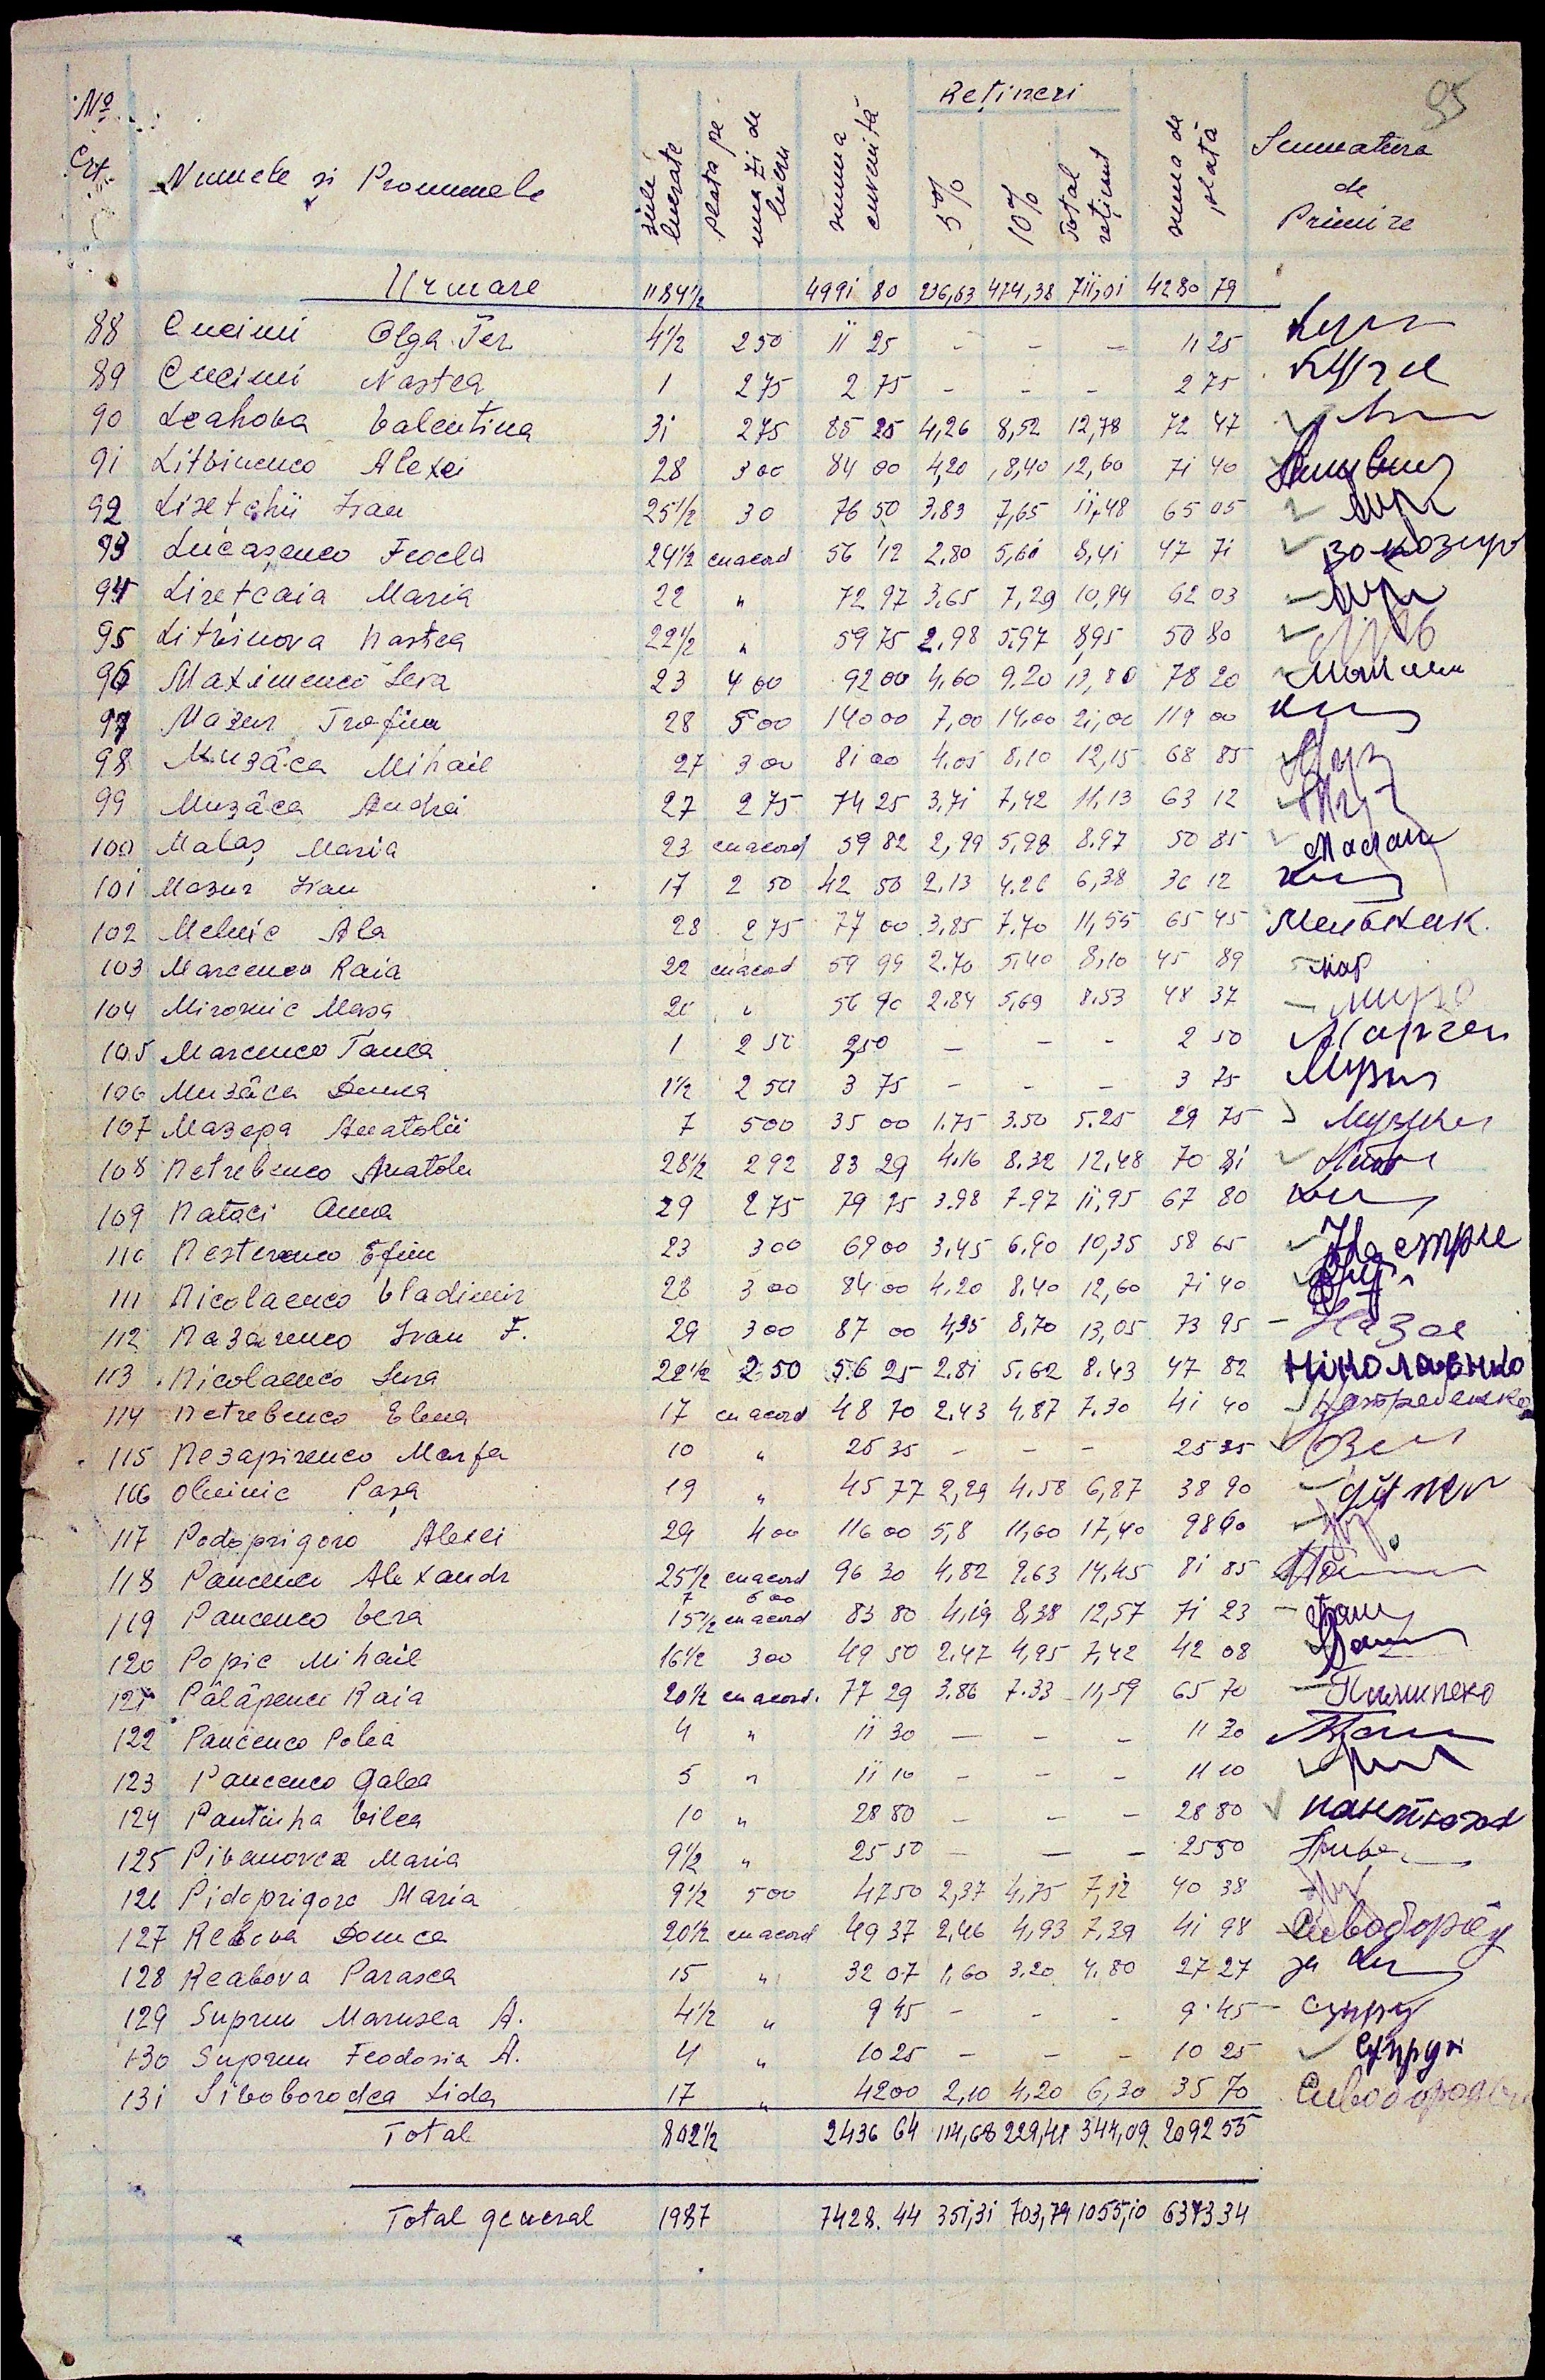 95
№ Crt. Numele și Pronumele zile lucrate plata pe una zi de lucru suma cuvenită Rețineri 5% 10% Total reținut suma de plată Semnatura de Primire
Urmare 1184½ 4991 80 236,63 474,38 711,01 4280 79
88 Cucimi Olga Ter 4½ 2 50 11 25 - - - 11 25
89 Cucimi Nastea 1 2 75 2 75 - - - 2 75
90 Leahova Valentina 31 2 75 85 25 4,26 8,52 12,78 72 47
91 Litvinenco Alexei 28 3 00 84 00 4,20 8,40 12,60 71 40
92 Lisetchii Ivan 25½ 30 76 50 3,83 7,65 11,48 65 05
93 Lucașenco Feocla 24½ cu acord 56 12 2,80 5,61 8,41 47 71
94 Lisetcaia Maria 22 " 72 97 3,65 7,29 10,94 62 03
95 Litvinova Nastea 22½ " 59 75 2,98 5,97 8,95 50 80
96 Maximenco Sera 23 4 00 92 00 4,60 9,20 13,80 78 20
97 Mazur Trofim 28 5 00 140 00 7,00 14,00 21,00 119 00
98 Muzâca Mihail 27 3 00 81 00 4,05 8,10 12,15 68 85
99 Muzâca Andrei 27 2 75 74 25 3,71 7,42 11,13 63 12
100 Malaș Maria 23 cu acord 59 82 2,99 5,98 8,97 50 85
101 Mazur Ivan 17 2 50 42 50 2,13 4,26 6,38 36 12
102 Melnic Ala 28 2 75 77 00 3,85 7,70 11,55 65 45 Мельник
103 Marcenco Raia 22 cu acord 59 99 2,70 5,40 8,10 45 89 мар
104 Mironic Mașa 21 " 56 90 2,84 5,69 8,53 48 37
105 Marcenco Tanea 1 2 50 2,50 - - - 2 50 Марчен
106 Muzâca Domna 1½ 2 50 3 75 - - - 3 75
107 Mazepa Anatolii 7 5 00 35 00 1,75 3,50 5,25 29 75
108 Netrebenco Anatolii 28½ 2 92 83 29 4,16 8,32 12,48 70 81
109 Nataci Anna 29 2 75 79 75 3,98 7,97 11,95 67 80
110 Nesterenco Efim 23 3 00 69 00 3,45 6,90 10,35 58 65
111 Nicolaenco Vladimir 28 3 00 84 00 4,20 8,40 12,60 71 40
112 Nazarenco Ivan F. 29 3 00 87 00 4,35 8,70 13,05 73 95
113 Nicolaenco Sura 22½ 2 50 56 25 2,81 5,62 8,43 47 82 Ніколаенко
114 Netrebenco Elena 17 cu acord 48 70 2,43 4,87 7,30 41 40
115 Nezapirenco Marfa 10 " 25 35 - - - 25 35
116 Olinic Pașa 19 " 45 77 2,29 4,58 6,87 38 90
117 Podoprigoro Alexei 29 4 00 116 00 5,8 11,60 17,40 98 60
118 Pancenco Alexandr 25½ cu acord 96 30 4,82 9,63 14,45 81 85
7 6 00
119 Pancenco Vera 15½ cu acord 83 80 4,19 8,38 12,57 71 23
120 Popic Mihail 16½ 3 00 49 50 2,47 4,95 7,42 42 08
121 Pâlâpenco Raia 20½ cu acord. 77 29 3,86 7,33 11,59 65 70
122 Pancenco Polea 4 " 11 30 - - - 11 30
123 Pancenco Galea 5 " 11 10 - - - 11 10
124 Pantiuha Vilea 10 " 28 80 - - - 28 80 пантюха
125 Pivanovca Maria 9½ " 25 50 - - - 25 50
126 Pidoprigora Maria 9½ 5 00 47 50 2,37 4,75 7,12 40 38
127 Rebova Domca 20½ cu acord 49 37 2,46 4,93 7,39 41 98
128 Reabova Parasca 15 " 32 07 1,60 3,20 4,80 27 27 за
129 Suprun Marusea A. 4½ " 9 45 - - - 9 45 супру
130 Suprun Feodosia A. 4 " 10 25 - - - 10 25 Супрун
131 Sivoborodca Lida 17 " 42 00 2,10 4,20 6,30 35 70
Total 802½ 2436 64 114,68 229,41 344,09 2092 55
Total general 1987 7428. 44 351,31 703,79 1055,10 6373 34